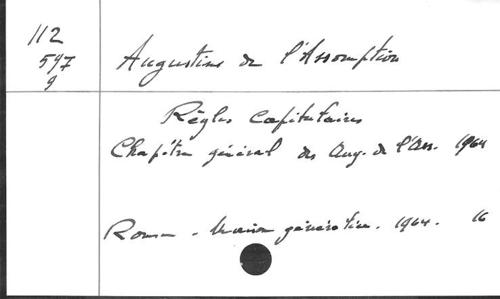 112
597
9
Augustins de l'Assomption
Règles capitulaires
Chapitre général des Aug. de l'Ass. 1964
Rome - Maison généralice. 1964. 16